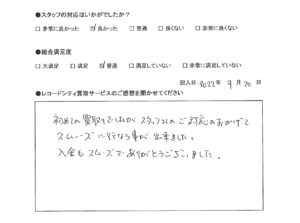 ●スタッフの対応はいかがでしたか?
□ 非常に良かった ☑ 良かった □ 普通 □ 良くない □ 非常に良くない
●総合満足度
□ 大満足 □ 満足 ☑ 普通 □ 満足していない □ 非常に満足していない
記入日:2022年 9月 20日
●レコードシティ買取サービスのご感想を聞かせてください
初めての買取りでしたがスタッフさんのご対応のおかげで
スムーズに行なう事が出来ました。
入金もスムーズでありがとうございました。